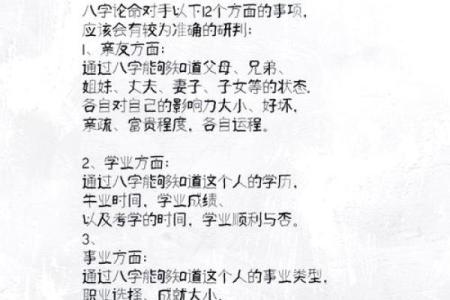 八字论命对手以下12个方面的事项,
应该会有较为准确的研判:
1、亲友方面:
通过八字能够知道父母、兄弟、
姐妹、丈夫、妻子、子女等的状态,
各自对自己的影响力大小、好坏,
亲疏、富贵程度，各自运程。
2、学业方面:
通过八字能够知道这个人的学历,
牛业时间，学业成绩、
以及考学的时间，学业顺利与否。
3、
事业方面:
通过八字能够知道这个人的事业类型,
职业选择、成就大小、